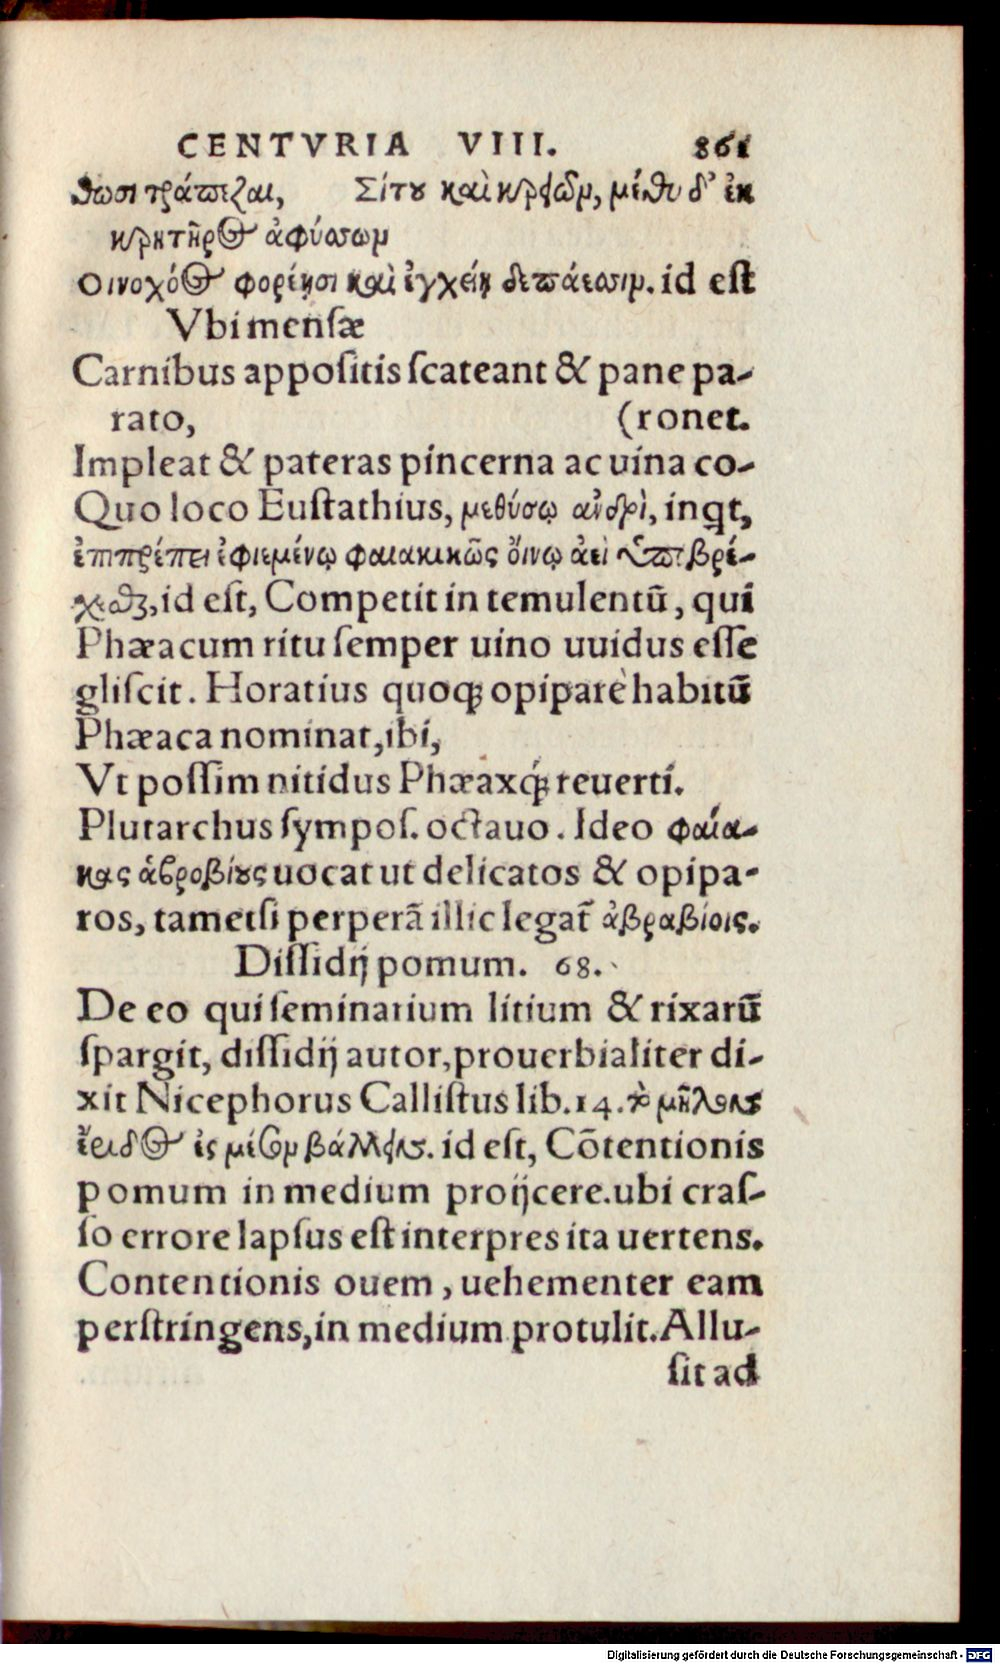 CENTVRIA VIII. 861
θωσι τράπεζαι, Σίτου καὶ κρειῶν, μέθυ δ' ἐκ
κρητῆρος ἀφύσσων
Οἰνοχόος φορέησι καὶ ἐγχείη δεπάεσσιν. id est
Vbi mensæ
Carnibus appositis scateant & pane pa-
rato, (ronet.
Impleat & pateras pincerna ac uina co-
Quo loco Eustathius, μεθύσῳ ἀνδρὶ, inqt,
ἐπιπρέπει ἐφιεμένῳ φαιακικῶς ὄινῳ ἀεὶ ὑποβρέ-
χεσθαι, id est, Competit in temulentū, qui
Phæacum ritu semper uino uuidus esse
gliscit. Horatius quoq; opiparè habitū
Phæaca nominat, ibi,
Vt possim nitidus Phæaxq́; reuerti.
Plutarchus sympos. octauo. Ideo φαία-
κας ἁβροβίους uocat ut delicatos & opipa-
ros, tametsi perperā illic legat̄ ἀβραβίοις.
Dissidij pomum. 68.
De eo qui seminarium litium & rixarū
spargit, dissidij autor, prouerbialiter di-
xit Nicephorus Callistus lib. 14. τὸ μῆλον τῆς
ἔριδος ἐς μέσον βάλλειν. id est, Cōtentionis
pomum in medium proijcere. ubi cras-
so errore lapsus est interpres ita uertens.
Contentionis ouem, uehementer eam
perstringens, in medium protulit. Allu-
sit ad
Digitalisierung gefördert durch die Deutsche Forschungsgemeinschaft - DFG